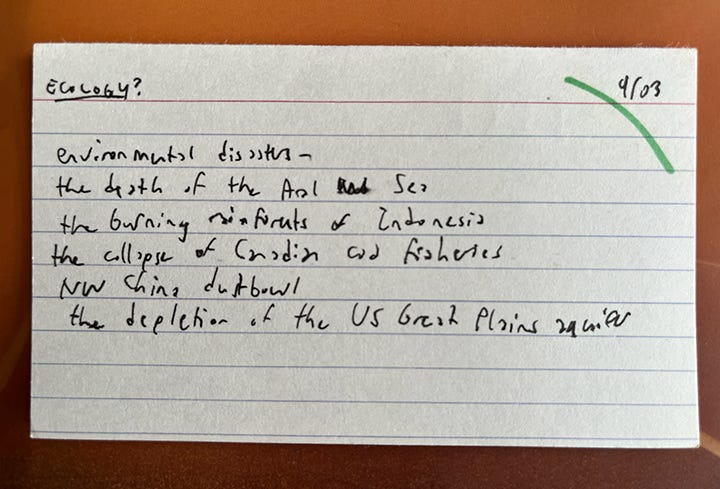 ECOLOGY?
9/03
environmental disasters –
the death of the Aral Sea
the burning rainforests of Indonesia
the collapse of Canadian cod fisheries
NW China dustbowl
the depletion of the US Great Plains aquifer